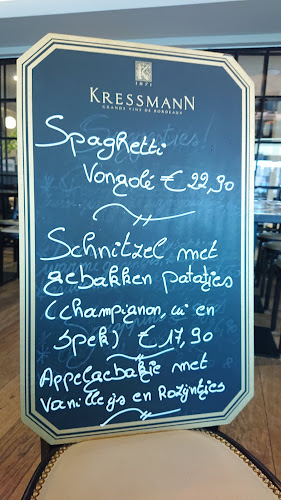 1871
KRESSMANN
GRANDS VINS DE BORDEAUX
Spaghetti
Vongolé € 22,90
Schnitzel met
gebakken patatjes
(champignon, ui en
spek) € 17,90
Appelgebakje met
Vanilleijs en Rozijntjes